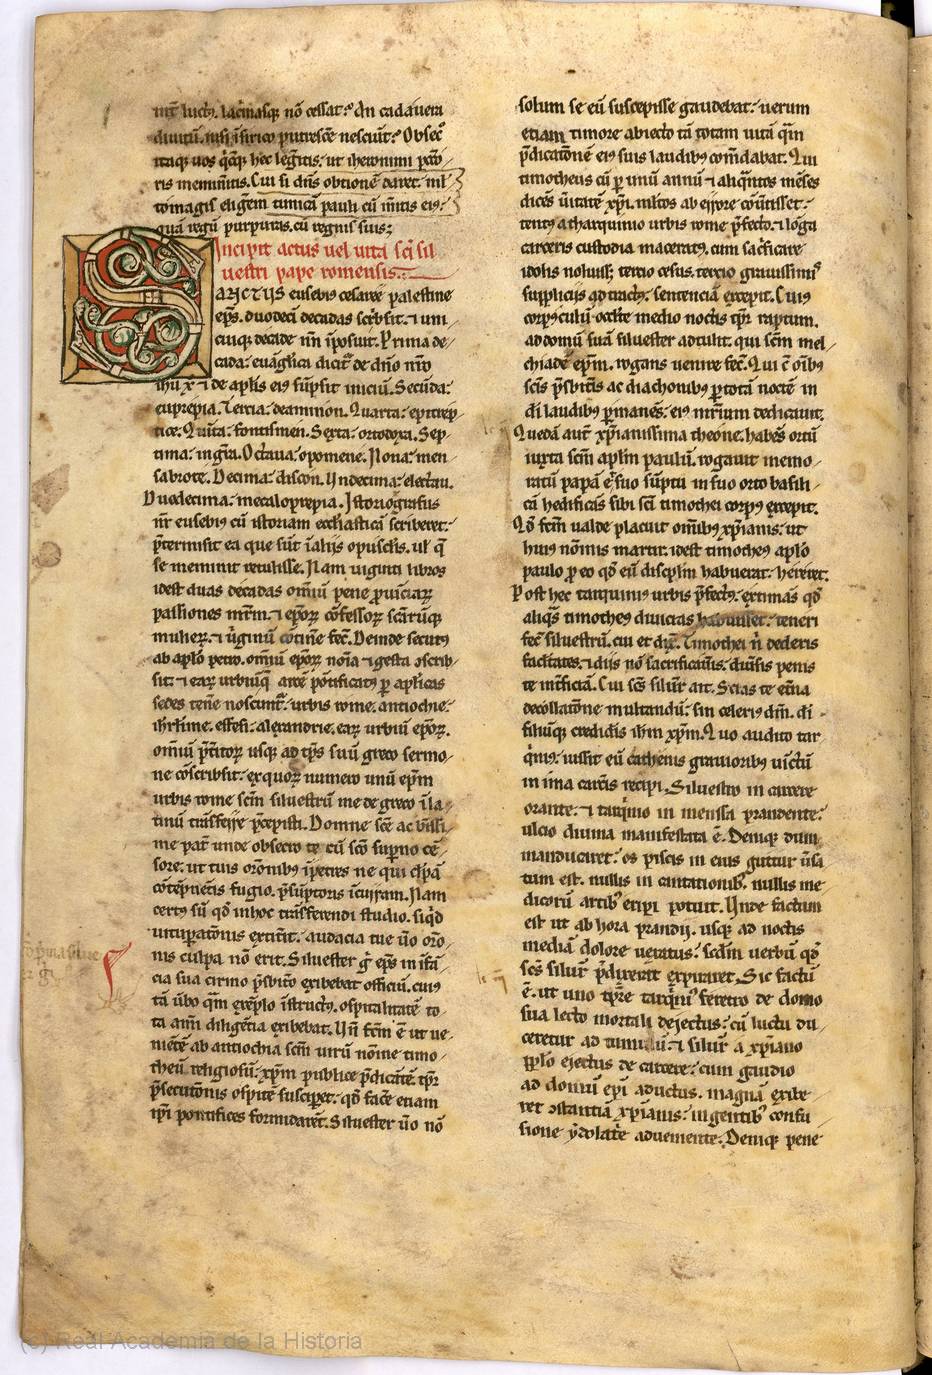 int̄ luct᷒. lac̄masq; nō cessat? An cadauera
diuitū. nisi ī sirico putresc̄e nesciūt? Obsec̄
itaq; uos q̄cq; hec leḡitis. ut iheronimi pcc̄o
ris memin̄itis. Cui si dn̄s obtionē daret. ml̄
to magis eligem tunicā pauli cū m̄itis ei᷒.
quā regū purpuras. cū regnis suis;
Incipit actus uel uita sc̄i sil
uestri pape romensis.
ARICTUS eusebi᷒ cesaree palestine
ep̄s. duodeci decadas sc̄bsit. ⁊ uni
cuiq; decade nn̄ īposuit. Prima de
cada. euāglica dicit̄ de dn̄o nr̄o
ihū x̄ ⁊ de ap̄lis ei᷒ sūpsit iniciū. Secūda.
euprepia. Tercia. deaminon. Quarta. epitrep
tice. Quīta. fontismen. Sexta. ortodoxa. Sep
tima. in gr̄a. Octaua. opomene. Nona. men
sabrote. Decima. discon. Undecima. electau.
Duodecima. mecaloprepia. Istoriografus
nr̄ eusebi᷒ cū istoriam ecclīasticā scriberet.
p̄termisit ea que sūt ī alijs opusclis. ul̄ q̄
se meminit retulisse. Nam uiginti libros
idest duas decadas omīū pene p̄uīciaꝝ
passiones mr̄m. ⁊ ep̄oꝝ cōfessoꝝ sc̄aꝝq;
mulieꝝ. ⁊ ū̄ginū cōtine fec̄. Deinde secut᷒
ab ap̄lo petro. omīū ep̄oꝝ noīa ⁊ gesta ɔscrib
sit. ⁊ eaꝝ urbiūq; arcē pōtificat᷒ p̱ aplīcas
sedes tene noscunt̄. urbis rome. antiochie.
ihrl̄ime. effesi. alexandrie. eaꝝ urbiū ep̄oꝝ.
omīū p̄titoꝝ usq; ad tp̄s suū greco sermo
ne cōscribsit. ex quoꝝ numero unū ep̄m
urbis rome sc̄m siluestrū me de greco ī la
tinū trāsferre p̄cepisti. Domne sc̄e ac bt̄issi
me pat̄ unde obsecro te cū sc̄o sup̱no cē
sore. ut tuis or̄onib᷒ īpetres ne qui clp̄ā
cōtēpn̄tis fugio. p̄sūptoris īcurram. Nam
cert᷒ sū qd̄ in hoc trāsferendi studio. siq̄d
uitup̱atōnis extit̄it. audacia tue ūo or̄o
nis culpa nō erit. Siluester ḡ ep̄s in ifā
cia sua cirino p̄sbito exibebat officiū. cui᷒
tā ūbo qm̄ exēplo īstruct᷒. ospitalitatē to
ta aim̄ diligētia exibebat. Uñ fc̄m ē ut ue
niētē ab antiochia sc̄m uirū nōine timo
theū religiosū. xp̄m publice p̄dicātē. tp̄r
p̄secutōnis ospite suscip̱et. qd̄ fac̄e etiam
ip̄i pontifices formidarēt. Siluester ūo nō
solum se eū suscepisse gaudebat. uerum
etiam timore abiecto tā totam uitā qm̄
p̄dicatōnē ei᷒ suis laudib᷒ com̄dabat. Qui
timotheus cū p̱ unū annū ⁊ aliq̄ntos mēses
dicēs ūitatē xp̄i. ml̄tos ab errore cōūtisset.
tent᷒ a tharquinio urbis rome p̄fecto. ⁊ lōga
carceris custodia macerat᷒. cum sac̄ficare
idolis noluiss;. tercio cesus. tercio grauissimi᷒
supplicijs adtract᷒. sentenciā excepit. Cui᷒
corp᷒culū occlte medio noctis tp̄r raptum.
ad domū suā siluester adtulit. qui sc̄m mel
chiadē ep̄m. rogans uenire fec̄. Qui c̄ oīb᷒
sc̄is p̄sbīt̄is ac diachonib᷒ p̱ totā noctē in
dī laudib᷒ p̱manēs. ei᷒ mr̄ium dedicauit.
Quedā aut̄ xp̄ianissima theone. habēs ortū
iuxta sc̄m aplm̄ paulū. rogauit memo
ratū papā ē suo sūptu in suo orto basili
cā hedificās sibi sc̄i timothei corp᷒ excepit.
Qd̄ fc̄m ualde placuit omīb᷒ xp̄ianis. ut
hui᷒ nōinis martir. idest timothe᷒ ap̄lo
paulo p̱ eo qd̄ eū discip̄lm habuerat. hereret.
Post hec tarquini᷒ urbis p̄fect᷒. extimās qd̄
aliq̄s timothe᷒ diuicias habuisset. teneri
fec̄ siluestrū. cui et dix̄. Timothei n̄ dederis
facl̄tates. ⁊ dijs nō sacrificau̅is. diūsis penis
te int̄ficiā. Cui sc̄s silur̄ ait. Scias te et̄na
decollatōne multandū. sin celeri᷒ dm̄. dī
filiūq; credidis ihm̄ xp̄m. Quo audito tar
q̄ni᷒. iussit eū cathenis grauiorib᷒ uīctū
in ima carc̄is recipi. Siluestro in carcere
orante. ⁊ tarq̄nio in menssa prandente.
ulcio diuina manifestata ē. Deniq; dum
manducaret. os piscis in eius guttur ūsa
tum est. nullis in cantationib᷒. nullis me
dicorū artib᷒ eripi potuit. Unde factum
est ut ab hora prandij. usq; ad noctis
mediā dolore uexatus. scd̄m uerbū qd̄
sc̄s silur̄ p̄dixerat expiraret. Sic factū
ē. ut uno tp̄re tarq̄ni᷒ feretro de domo
sua lecto mortali deiectus. cū luctu du
ceretur ad tumulū. ⁊ silur̄ a xp̄iano
pp̱lo eiectus de carcere. cum gaudio
ad domū ep̄i aductus. magnā exibe
ret ɔstantiā xp̄ianis. ingentib᷒ confu
sione ydolat̄e adueniente. Deniq; pene
(c) Real Academia de la Historia